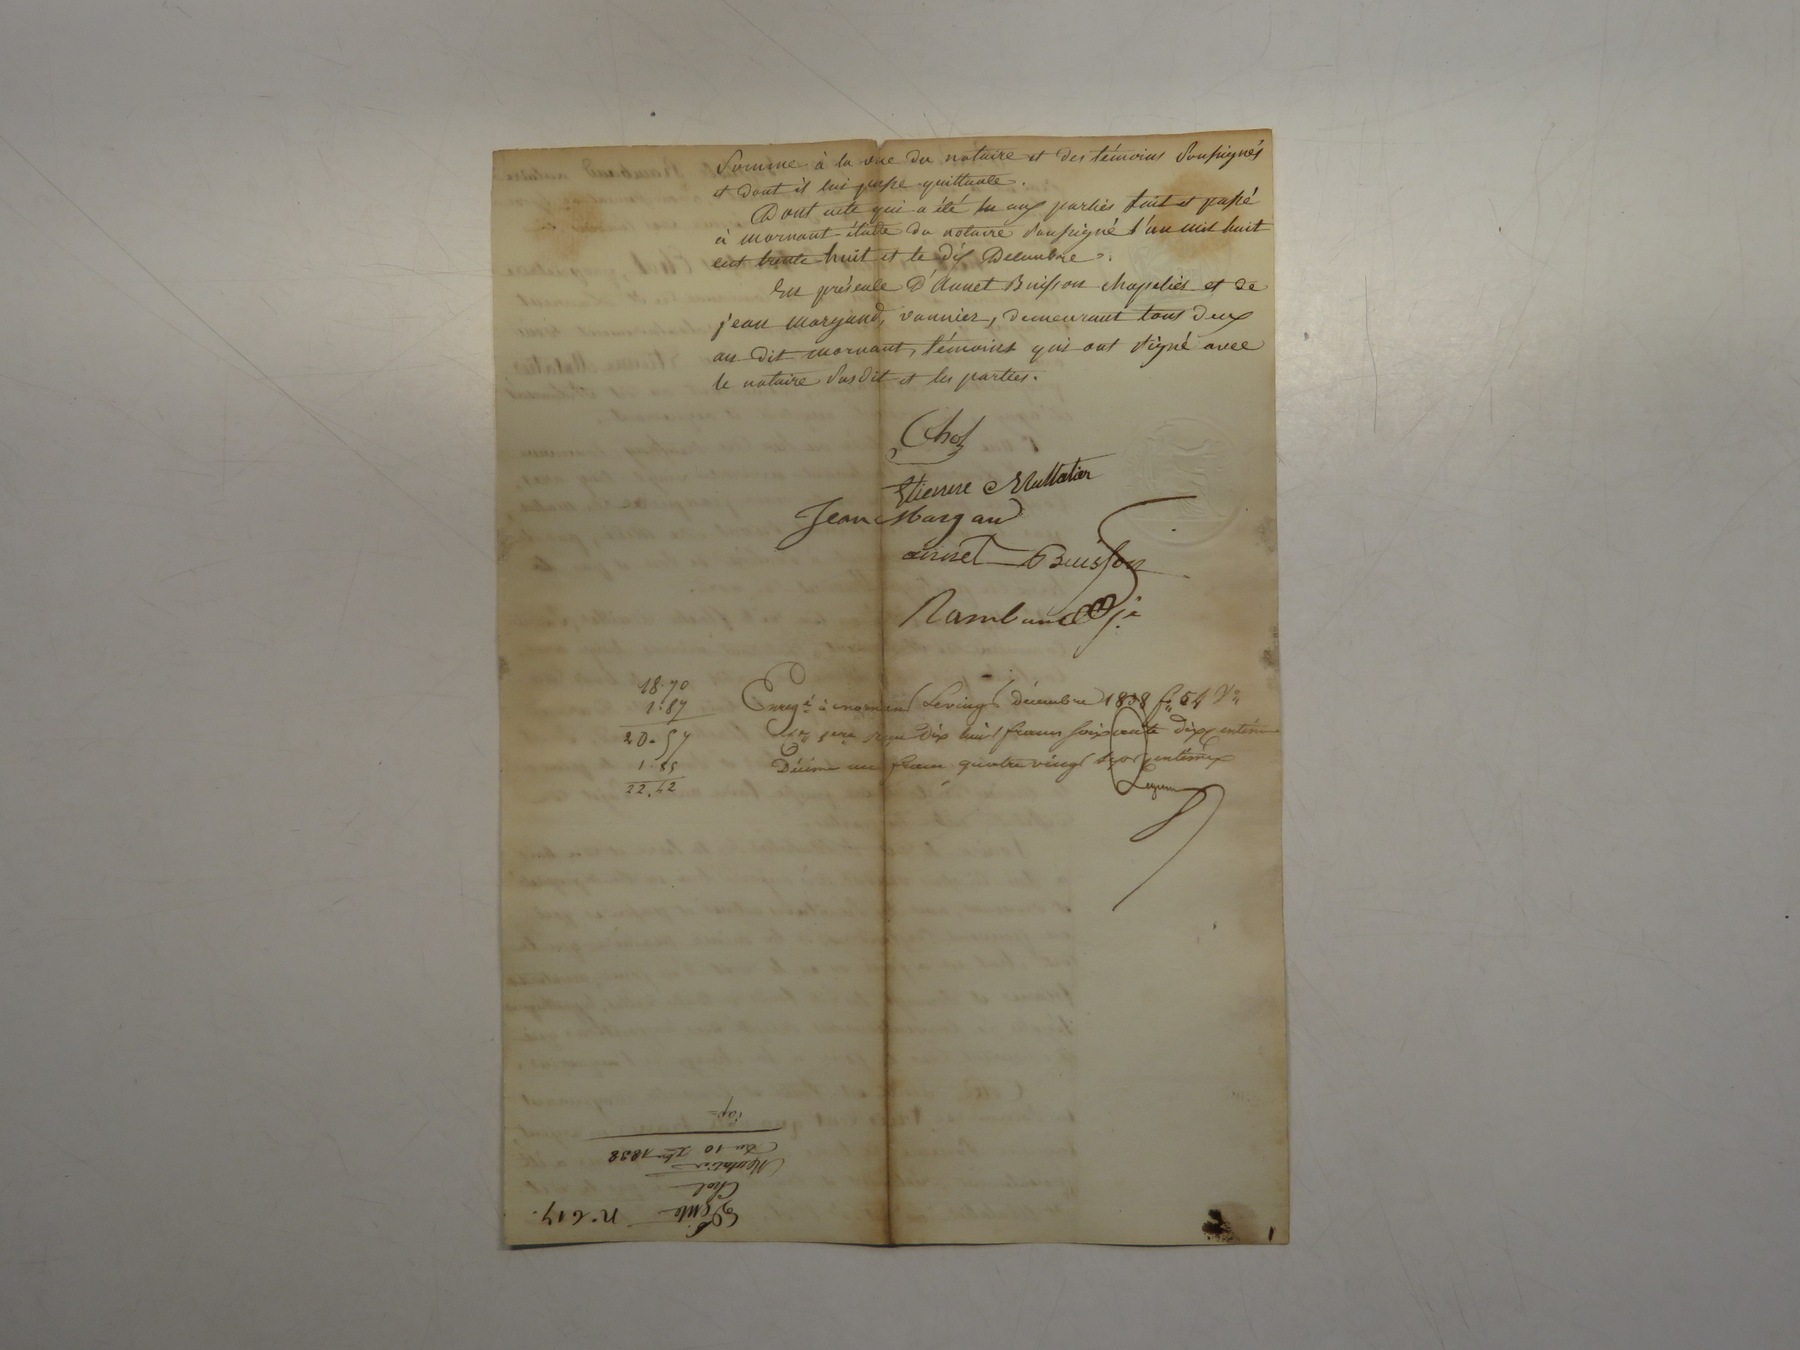 Somme à la vue du notaire et des témoins soussignés
et dont il lui passe quittance.
Dont acte qui a été lu aux parties fait et passé
à mornant étude du notaire soussigné l'an mil huit
cent trente huit et le dix Décembre.
En présence d'Annet Buisson chapelier et de
jean margand, vannier, demeurant tous deux
au dit mornant, témoins qui ont signé avec
le notaire susdit et les parties.
Chol
Etienne Mullatier
Jean Margand
annet Buisson
Rambaud
18.70
1.87
20.57
1.85
22.42
Enregé à mornant le vingt décembre 1838 fo 54 Vo
reçu dix huit francs soixante dix centimes
Décime un franc quatre vingt sept centimes
Vente no 617.
Chol
Du 10 Xbre 1838